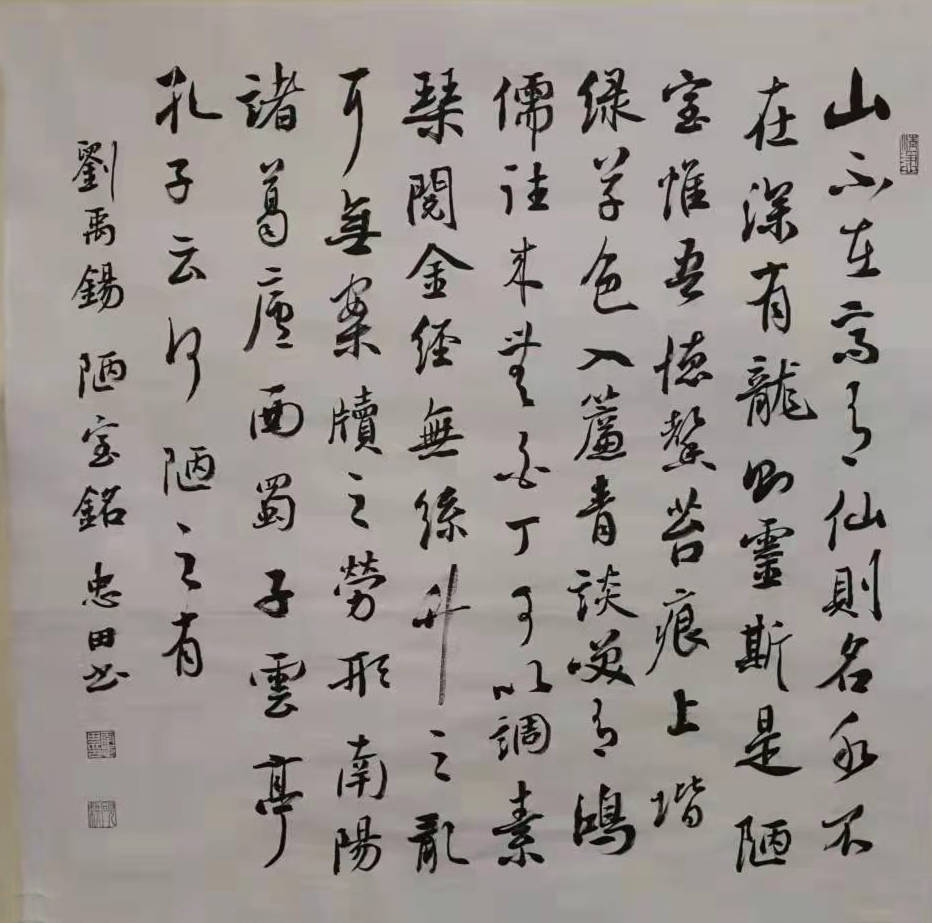 山不在高有仙則名水不
在深有龍則靈斯是陋
室惟吾德馨苔痕上堦
緑草色入簾青談笑有鴻
儒往来無白丁可以調素
琹閲金經無絲竹之亂
耳無案牘之勞形南陽
諸葛廬西蜀子雲亭
孔子云何陋之有
劉禹錫 陋室銘 忠田书